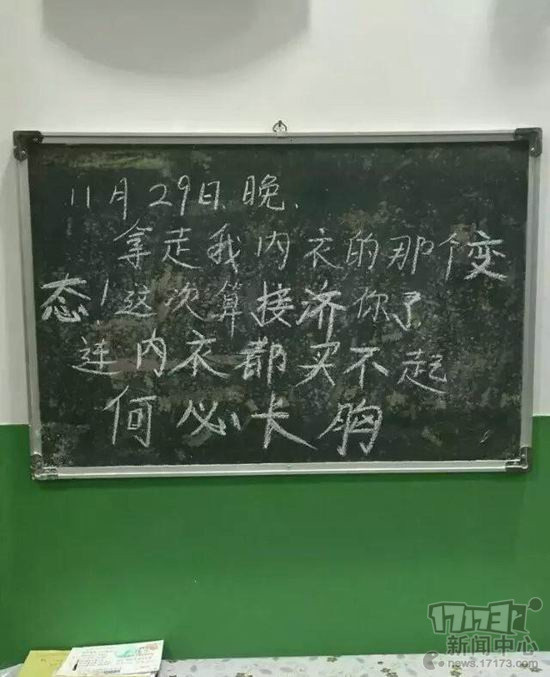 11月29日.晚.
拿走我内衣的那个变
态！这次算接济你了
连内衣都买不起
何必长胸
17173
新闻中心
news.17173.com